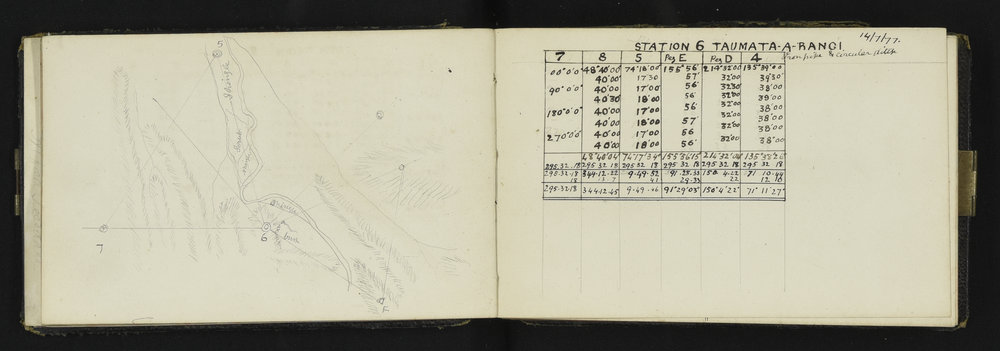 5
Shingle
7
6
bush
4
STATION 6 TAUMATA-A-RANGI
14/7/77
Iron pipe & circular ditch
7 8 5 Peg E Peg D 4
00°0'0" 48°40'00" 74°18'00" 155°56' 214°32'00 135°39'00
40'00 17'30 57' 32'00 39'30
90°0'0" 40'00 17'00 56' 32'30 38'00
40'30 18'00 56' 32'00 39'00
180°0'0" 40'00 17'00 56' 32'00 38'00
40'00 18'00 57' 32'00 38'00
270°0'0" 40'00 17'00 56 32'00 38'00
40'00 18'00 56' 32'00 38'00
48°40'04" 74°17'34" 155°56'15" 214°32'04"
295.32.18 295 32 18 295 32 18 295 32 18 295 32 18 295 32 18
295.32.18 344.12.22 9.49.52 91.28.33 150 4.22 71 10.44
295.32.18 344.12.45 9.49. 91°29'03" 150°4'22" 71°11'27"